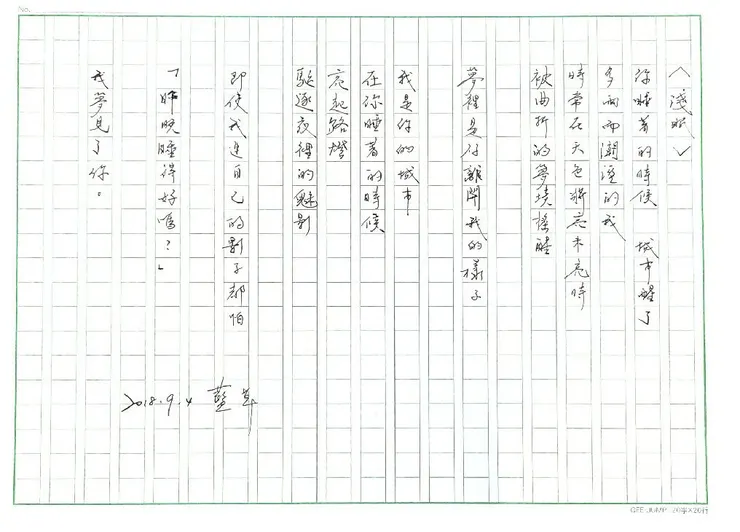 No.
〈淺眠〉
你睡著的時候 城市醒了
多雨而潮溼的我
時常在天色將亮未亮時
被曲折的夢境搖醒
夢裡是你離開我的樣子
我是你的城市
在你睡著的時候
亮起路燈
驅逐夜裡的魅影
即使我連自己的影子都怕
「昨晚睡得好嗎？」
我夢見了你。
2018.9.4 藍草
20字×20行